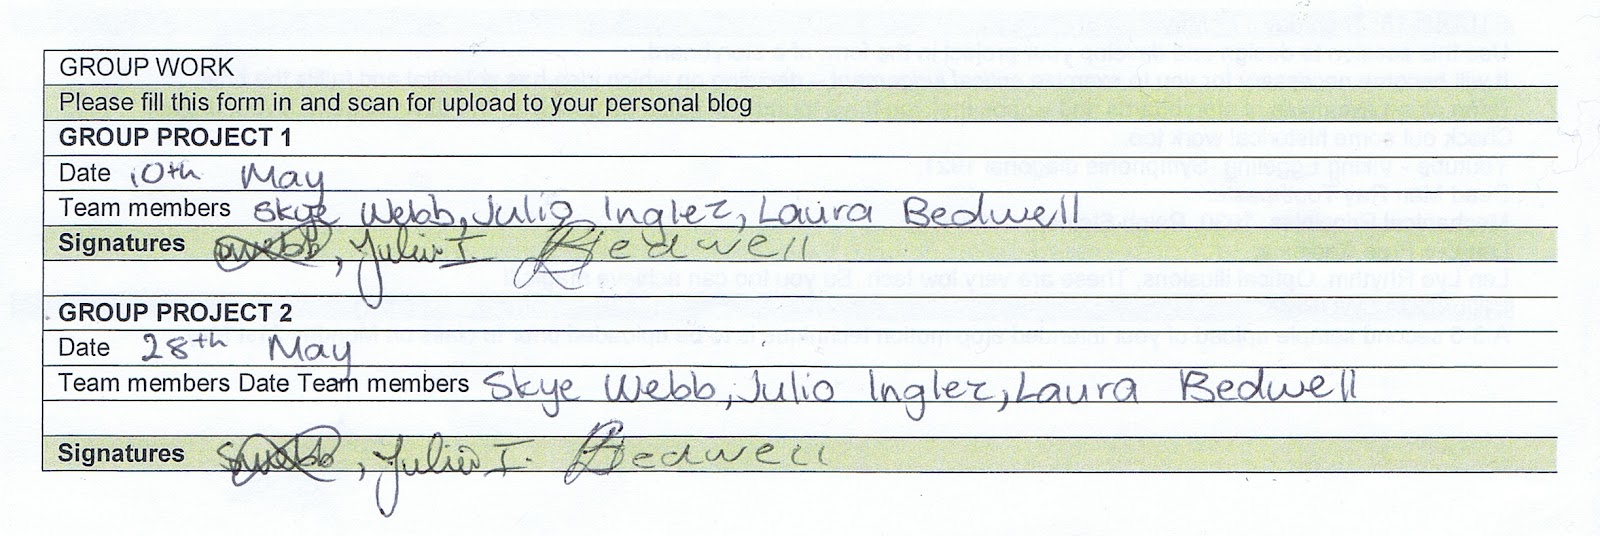 GROUP WORK
Please fill this form in and scan for upload to your personal blog
GROUP PROJECT 1
Date 10th May
Team members Skye Webb, Julio Inglez, Laura Bedwell
Signatures swebb, Julio I BBedwell
GROUP PROJECT 2
Date 28th May
Team members Date Team members Skye Webb, Julio Inglez, Laura Bedwell
Signatures swebb, Julio I. Bedwell